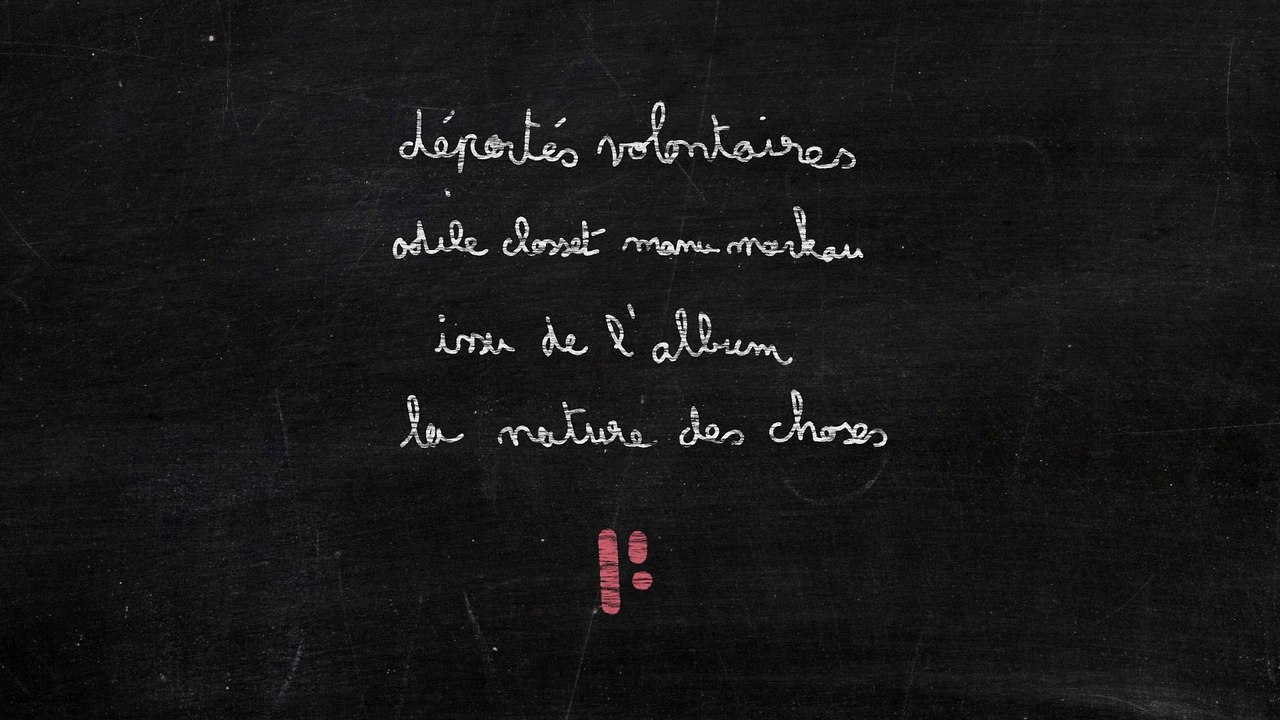 déportés volontaires
odile closset manu markau
issu de l'album
la nature des choses